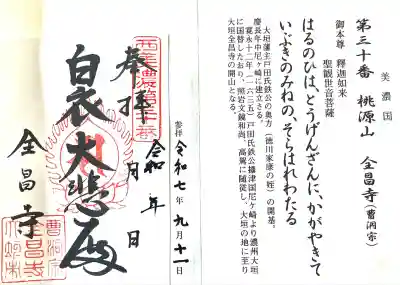 美濃国
第三十番 桃源山 全昌寺(曹洞宗)
御本尊 釋迦如来
聖観世音菩薩
はるのひは、とうげんざんに、かがやきて
いぶきのみねの、そらはれわたる
大垣藩主戸田氏鉄公の奥方(徳川家康の姪)の開基。
慶長年中尼ヶ崎に建立さる。
寛永十二年(一六三五)戸田氏鉄公攝津国尼ヶ崎より濃州大垣
に国替したおり、照岩文鏡和尚、高駕に随従し、大垣の地に至り
大垣全昌寺の開山となる。
参拝 令和七年九月十一日
奉拝
令和 年 月 日
白衣大悲殿
全昌寺